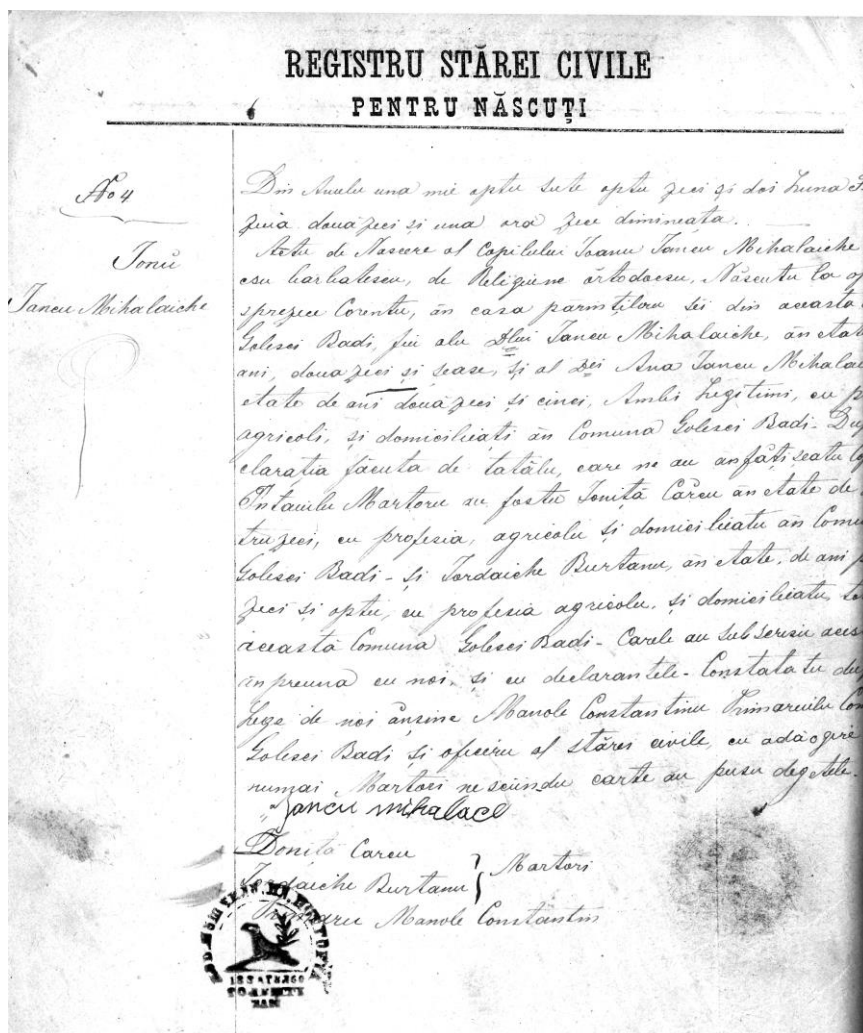 REGISTRU STĂREI CIVILE
PENTRU NĂSCUȚI
No 4
Ionŭ
Iancu Mihalaiche
Din Anulu una mie optu sute optu zeci și doi Luna
ziua două zeci și una ora zece dimineața.
Actu de Nascere al Copilului Ioanu Iancu Mihalaiche
csu barbatescu, de Religiune ortodocsu, Născutu la
sprezece Corentu, ân casa părinților sei din aceasta
Golesci Badi, fiu alu Dlui Iancu Mihalaiche, ân etat
ani, doua zeci și sease, și al Dei Ana Iancu Mihalai
etate de ani două zeci și cinci, Ambi Legitimi, cu p
agricoli, și domiciliați ân Comuna Golesci Badi - Du
clarația făcuta de tatălu, care ne au anfățiseatu
Întaiulu Martoru au fostu Ioniță Carcu ân etate de
tru zeci, cu profesia, agricolu și domiciliatu ân Comu
Golesci Badi - și Iordaiche Burtanu, ân etate, de ani
zeci și optu, cu profesia agricolu, și domiciliatu t
această Comuna Golesci Badi - Carele au subscrisu aces
ânpreuna cu noi, și cu declarantele - Constatatu du
Lege de noi ânsine Manole Constantinu Primarulu Com
Golesci Badi și oficeru al stărei civile, cu adăogire
numai Martori nesciindu carte au pusu degetele -
Iancu mihalace
Ioniță Carcu
Iordaiche Burtanu } Martori
Primaru Manole Constantin